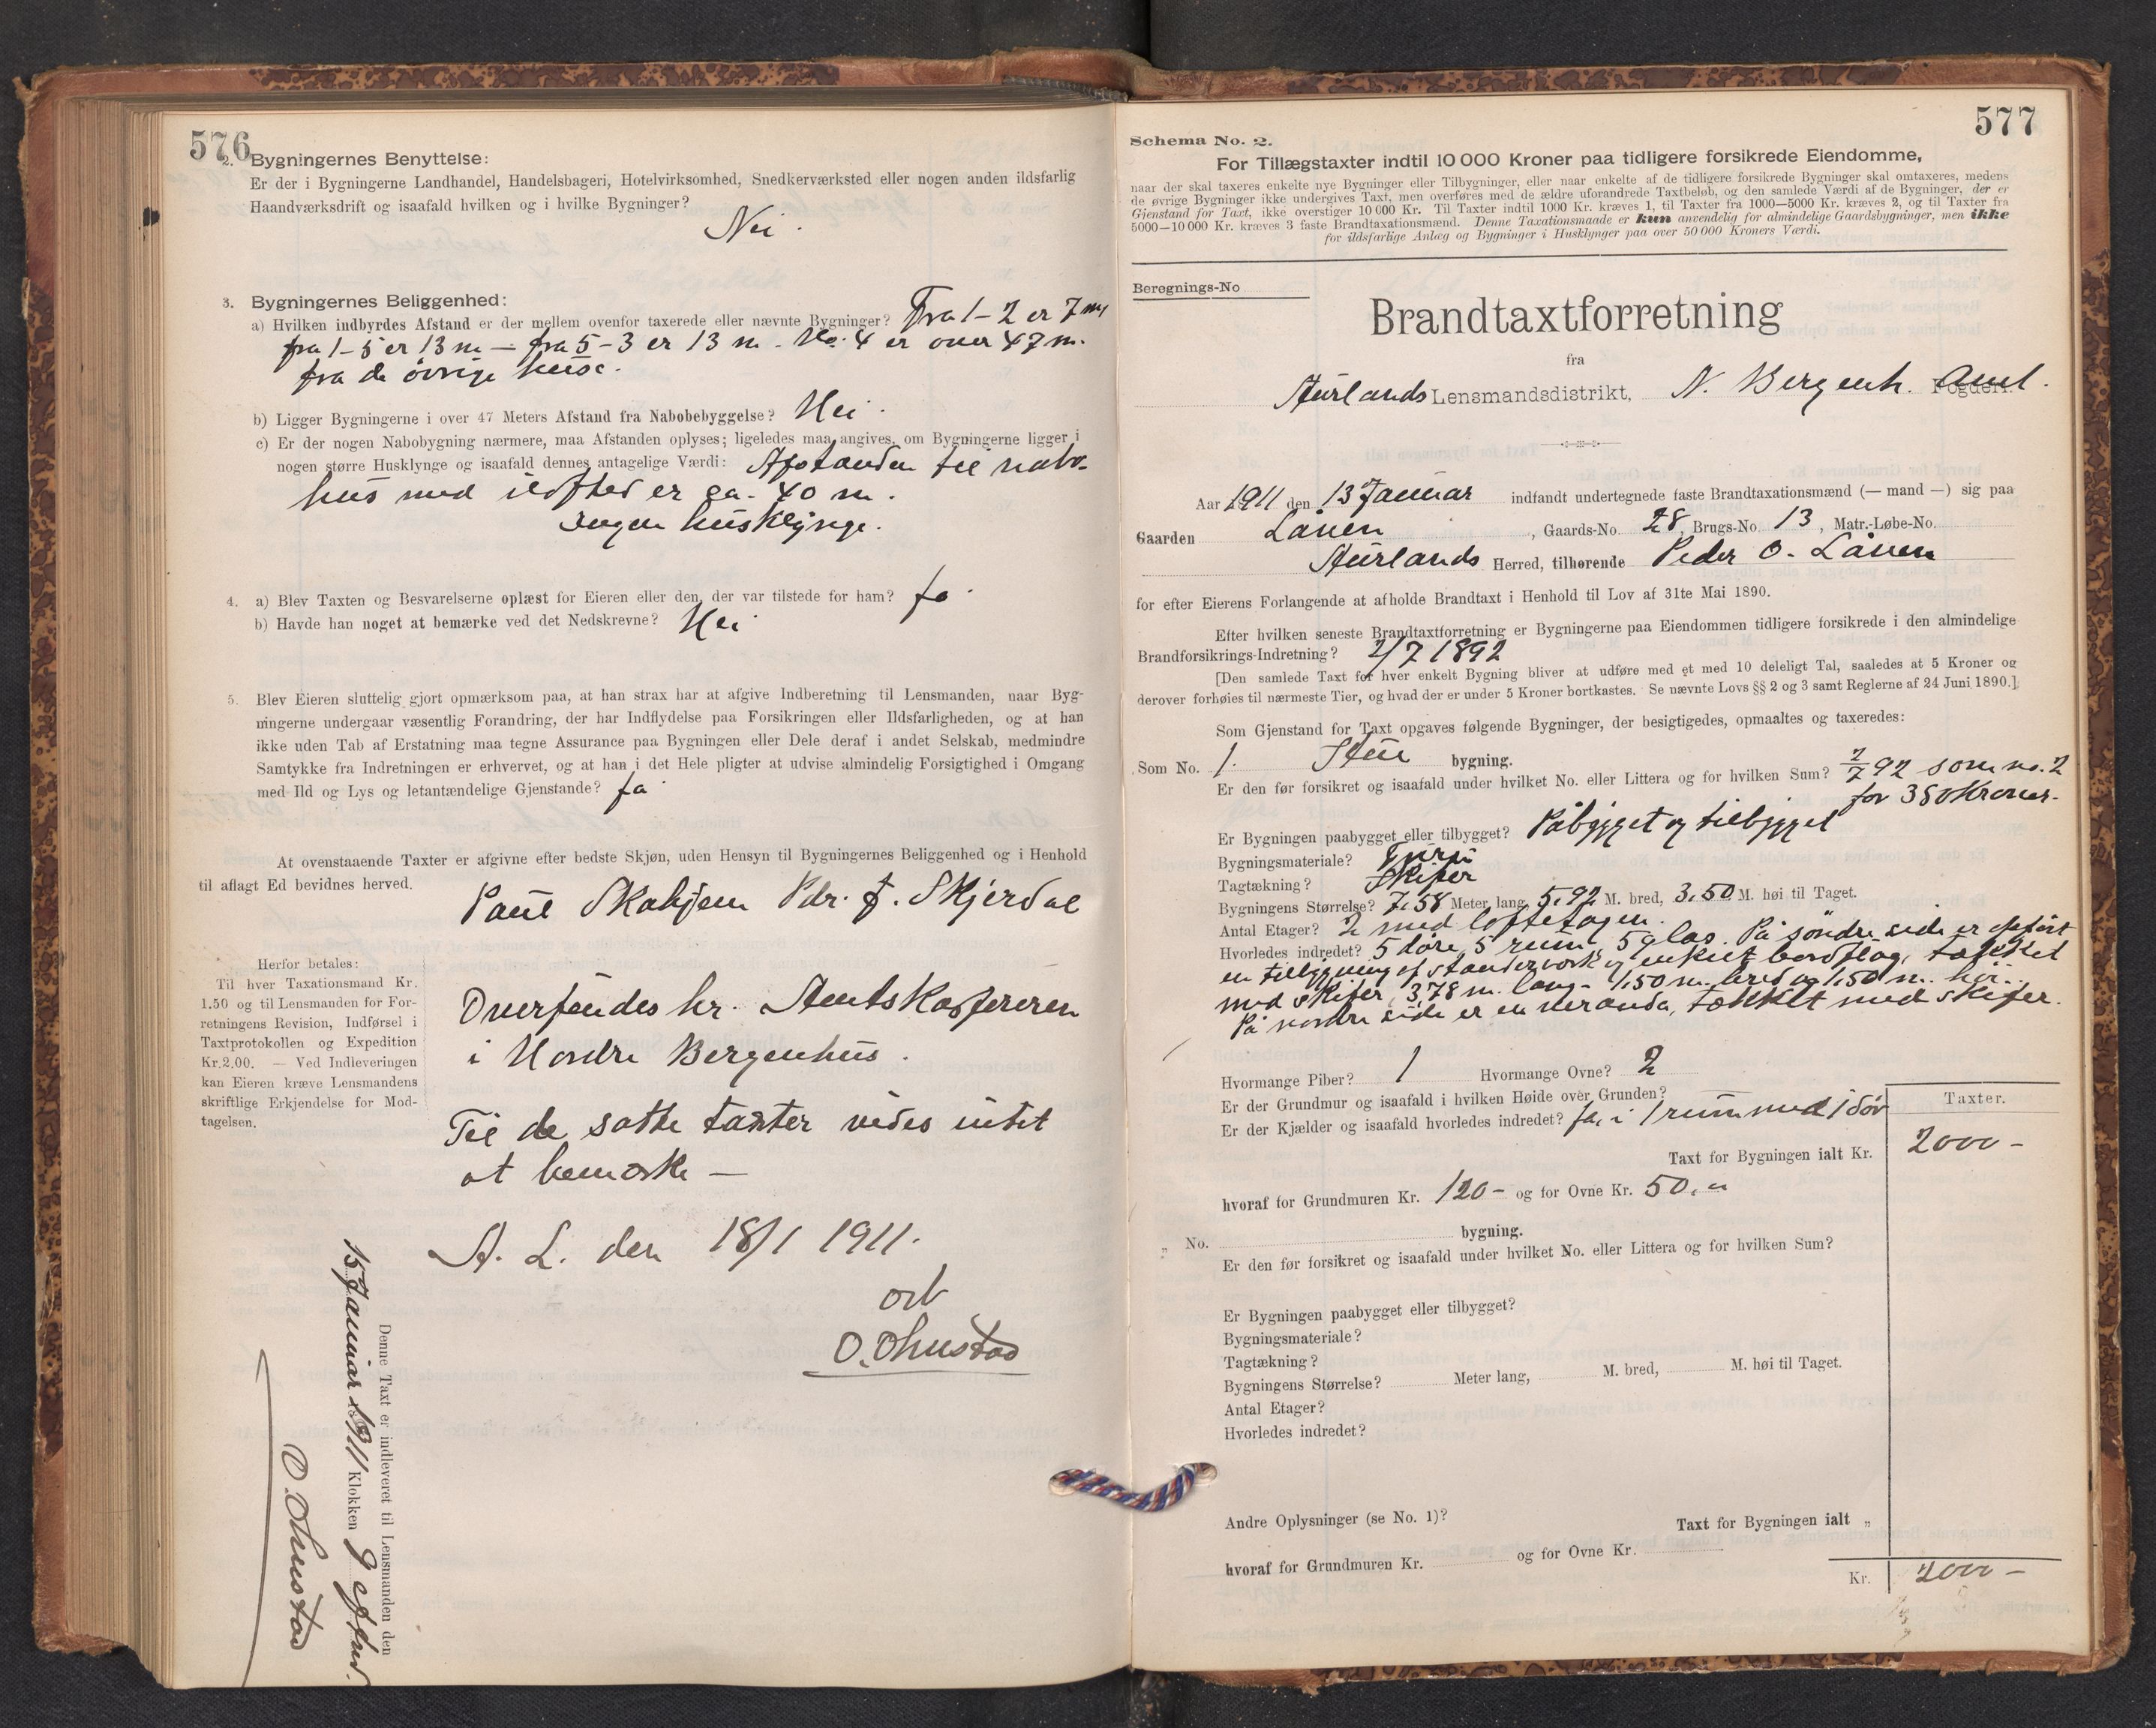 576
2. Bygningernes Benyttelse:
Er der i Bygningerne Landhandel, Handelsbageri, Hotelvirksomhed, Snedkerværksted eller nogen anden ildsfarlig
Haandværksdrift og isaafald hvilken og i hvilke Bygninger?
Nei.
3. Bygningernes Beliggenhed:
a) Hvilken indbyrdes Afstand er der mellem ovenfor taxerede eller nævnte Bygninger? Fra 1-2 er 7 m,
fra 1-5 er 13 m — fra 5-3 er 13 m. No. 4 er over 47 m.
fra de övrige huse.
b) Ligger Bygningerne i over 47 Meters Afstand fra Nabobebyggelse? Nei.
c) Er der nogen Nabobygning nærmere, maa Afstanden oplyses; ligeledes maa angives, om Bygningerne ligger i
nogen større Husklynge og isaafald dennes antagelige Værdi: Afstanden til nabo-
hus med ildsted er ca. 40 m.
Ingen husklynge.
4. a) Blev Taxten og Besvarelserne oplæst for Eieren eller den, der var tilstede for ham? Ja.
b) Havde han noget at bemærke ved det Nedskrevne? Nei
5. Blev Eieren sluttelig gjort opmærksom paa, at han strax har at afgive Indberetning til Lensmanden, naar Byg-
ningerne undergaar væsentlig Forandring, der har Indflydelse paa Forsikringen eller Ildsfarligheden, og at han
ikke uden Tab af Erstatning maa tegne Assurance paa Bygningen eller Dele deraf i andet Selskab, medmindre
Samtykke fra Indretningen er erhvervet, og at han i det Hele pligter at udvise almindelig Forsigtighed i Omgang
med Ild og Lys og letantændelige Gjenstande? Ja
At ovenstaaende Taxter er afgivne efter bedste Skjøn, uden Hensyn til Bygningernes Beliggenhed og i Henhold
til aflagt Ed bevidnes herved.
Paul Skahjem Pdr. J. Skjerdal
Herfor betales:
Til hver Taxationsmand Kr.
1.50 og til Lensmanden for For-
retningens Revision, Indførsel i
Taxtprotokollen og Expedition
Kr. 2.00. — Ved Indleveringen
kan Eieren kræve Lensmandens
skriftlige Erkjendelse for Mod-
tagelsen.
Oversendes hr. Amtskassereren
i Nordre Bergenhus.
Til de satte taxter vides intet
at bemærke —
A. L. den 18/1 1911.
O. Ohnstad
Denne Taxt er indleveret til Lensmanden den
15 Januar 1911 Klokken 9 efterm.
O. Ohnstad
577
Schema No. 2.
For Tillægstaxter indtil 10 000 Kroner paa tidligere forsikrede Eiendomme,
naar der skal taxeres enkelte nye Bygninger eller Tilbygninger, eller naar enkelte af de tidligere forsikrede Bygninger skal omtaxeres, medens
de øvrige Bygninger ikke undergives Taxt, men overføres med de ældre uforandrede Taxtbeløb, og den samlede Værdi af de Bygninger, der er
Gjenstand for Taxt, ikke overstiger 10 000 Kr. Til Taxter indtil 1000 Kr. kræves 1, til Taxter fra 1000—5000 Kr. kræves 2, og til Taxter fra
5000—10 000 Kr. kræves 3 faste Brandtaxationsmænd. Denne Taxationsmaade er kun anvendelig for almindelige Gaardsbygninger, men ikke
for ildsfarlige Anlæg og Bygninger i Husklynger paa over 50 000 Kroners Værdi.
Beregnings-No
Brandtaxtforretning
fra
Aurlands Lensmandsdistrikt, N. Bergenh. Amt. Fogderi.
Aar 1911 den 13 Januar indfandt undertegnede faste Brandtaxationsmænd (— mand —) sig paa
Gaarden Lånen, Gaards-No 28, Brugs-No 13, Matr.-Løbe-No.
Aurlands Herred, tilhørende Peder O. Lånen
for efter Eierens Forlangende at afholde Brandtaxt i Henhold til Lov af 31te Mai 1890.
Efter hvilken seneste Brandtaxtforretning er Bygningerne paa Eiendommen tidligere forsikrede i den almindelige
Brandforsikrings-Indretning? 2/7 1892
[Den samlede Taxt for hver enkelt Bygning bliver at udføre med et med 10 deleligt Tal, saaledes at 5 Kroner og
derover forhøies til nærmeste Tier, og hvad der er under 5 Kroner bortkastes. Se nævnte Lovs §§ 2 og 3 samt Reglerne af 24 Juni 1890.]
Som Gjenstand for Taxt opgaves følgende Bygninger, der besigtigedes, opmaaltes og taxeredes:
Som No. 1. Stue bygning.
Er den før forsikret og isaafald under hvilket No. eller Littera og for hvilken Sum? 2/7 92 som no. 2
for 380 Kroner.
Er Bygningen paabygget eller tilbygget? Påbygget og tilbygget
Bygningsmateriale? Furu
Tagtækning? Skifer
Bygningens Størrelse? 7,58 Meter lang, 5,92 M. bred, 3,50 M. høi til Taget.
Antal Etager? 2 med loftetagen.
Hvorledes indredet? 5 döre, 5 rum, 5 glas. På söndre side er opfört
en tilbygning af standerværk og enkelt bordflag, tækket
med skifer, 3,78 m. lang - 1,50 m. bred og 1,50 m. höi.
På nordre side er en veranda, tækket med skifer.
Hvormange Piber? 1 Hvormange Ovne? 2
Er der Grundmur og isaafald i hvilken Høide over Grunden?
Er der Kjælder og isaafald hvorledes indredet? Ja, i 1 rum med 1 dör
Taxter.
Taxt for Bygningen ialt Kr. 2000 -
hvoraf for Grundmuren Kr. 120 - og for Ovne Kr. 50. "
„ No. bygning.
Er den før forsikret og isaafald under hvilket No. eller Littera og for hvilken Sum?
Er Bygningen paabygget eller tilbygget?
Bygningsmateriale?
Tagtækning?
Bygningens Størrelse? Meter lang, M. bred, M. høi til Taget.
Antal Etager?
Hvorledes indredet?
Andre Oplysninger (se No. 1)? Taxt for Bygningen ialt „
hvoraf for Grundmuren Kr. og for Ovne Kr.
Kr. 2000 -